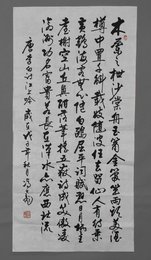 木蘭之枻沙棠舟玉簫金管坐兩頭美酒
樽中置千斛載妓隨波任去留仙人有待乘
黃鶴海客無心隨白鷗屈平詞賦懸日月楚王
臺榭空山丘興酣落筆搖五嶽詩成笑傲凌
滄洲功名富貴若長在漢水亦應西北流
唐李白詩江上吟